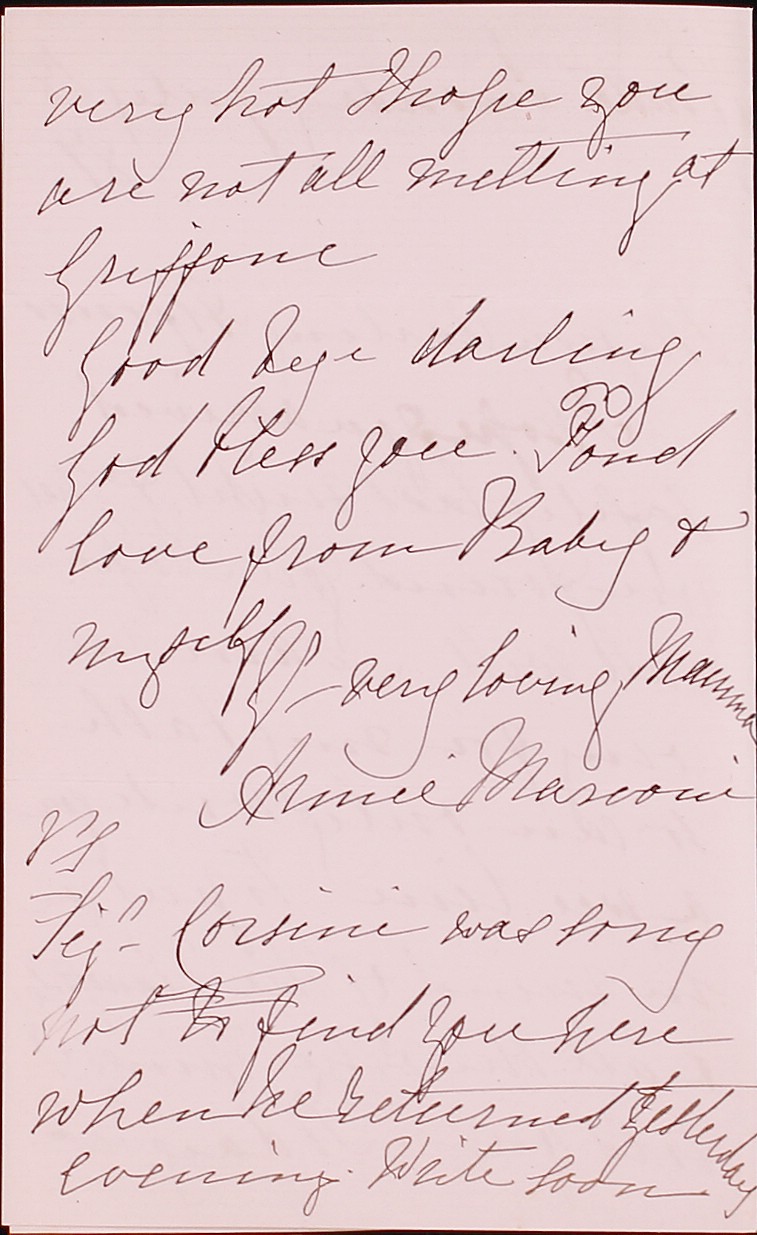 very hot I hope you
are not all melting at
Griffone
Good bye darling
God bless you. Fond
love from Baby &
myself Yr very loving Mamma
Annie Marconi
PS
Sigr Corsini was sorry
not to find you here
when he returned yesterday
evening. Write soon